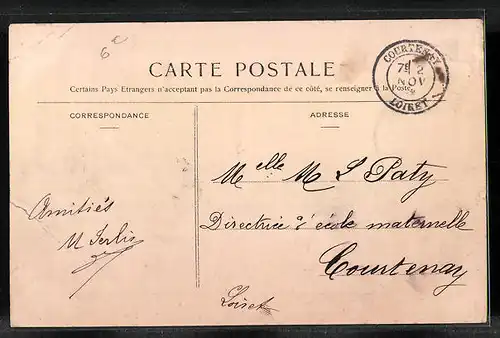 6e
CARTE POSTALE
Certains Pays Etrangers n'acceptant pas la Correspondance de ce côté, se renseigner à la Poste.
CORRESPONDANCE
ADRESSE
COURTENAY
2
NOV
LOIRET
Amitiés
Melle M L Paty
Directrice d'école maternelle
Courtenay
Loiret